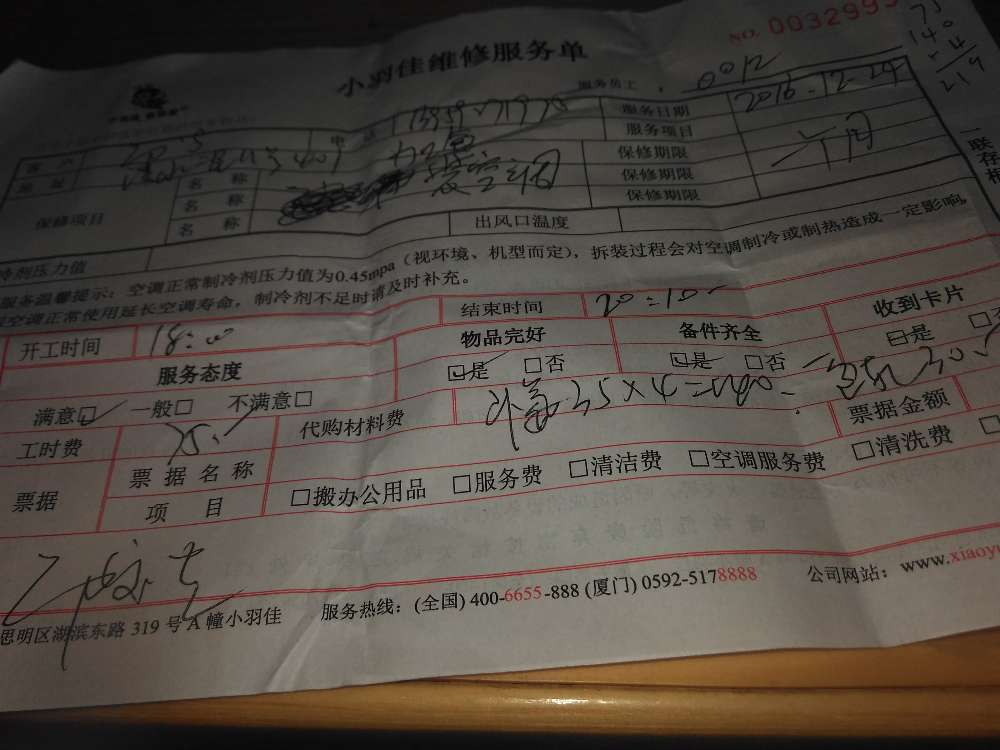 小羽佳维修服务单
NO. 003299
75
140
4
219
服务员工： 0012
服务日期 2016-12-24
服务项目
名 称 装空调 保修期限 六月
保修项目 名 称 保修期限
名 称 保修期限
一联存根
冷剂压力值 出风口温度
服务温馨提示：空调正常制冷剂压力值为0.45mpa（视环境、机型而定），拆装过程会对空调制冷或制热造成一定影响，
空调正常使用延长空调寿命，制冷剂不足时请及时补充。
开工时间 18:00 结束时间 20:10
服务态度 物品完好 备件齐全 收到卡片
满意☑ 一般□ 不满意□ ☑是 □否 ☑是 □否 是 □
工时费 75 代购材料费 35×4=140 30
票据 票据名称 票据金额
项 目 □搬办公用品 □服务费 □清洁费 □空调服务费 □清洗费
思明区湖滨东路 319 号 A 幢小羽佳 服务热线：(全国) 400-6655-888 (厦门) 0592-5178888 公司网站：www.xiaoy